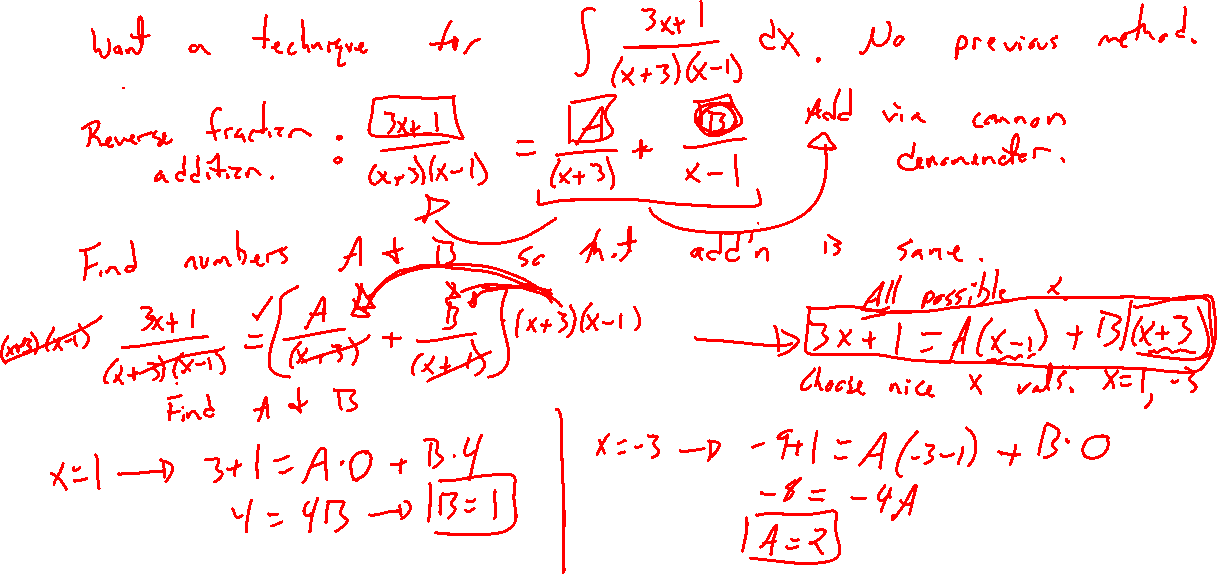 Want a technique for ∫ (3x+1)/((x+3)(x-1)) dx. No previous method.
Reverse fraction addition. : (3x+1)/((x+3)(x-1)) = A/(x+3) + B/(x-1) Add via common denomenator.
Find numbers A + B so that add'n is same.
(x+3)(x-1) (3x+1)/((x+3)(x-1)) = (A/(x+3) + B/(x+1)) (x+3)(x-1) → 3x+1 = A(x-1) + B(x+3)
All possible x
Find A + B
Choose nice x vals. x=1, -3
x=1 → 3+1 = A·0 + B·4
4 = 4B → B=1
x=-3 → -9+1 = A(-3-1) + B·0
-8 = -4A
A=2